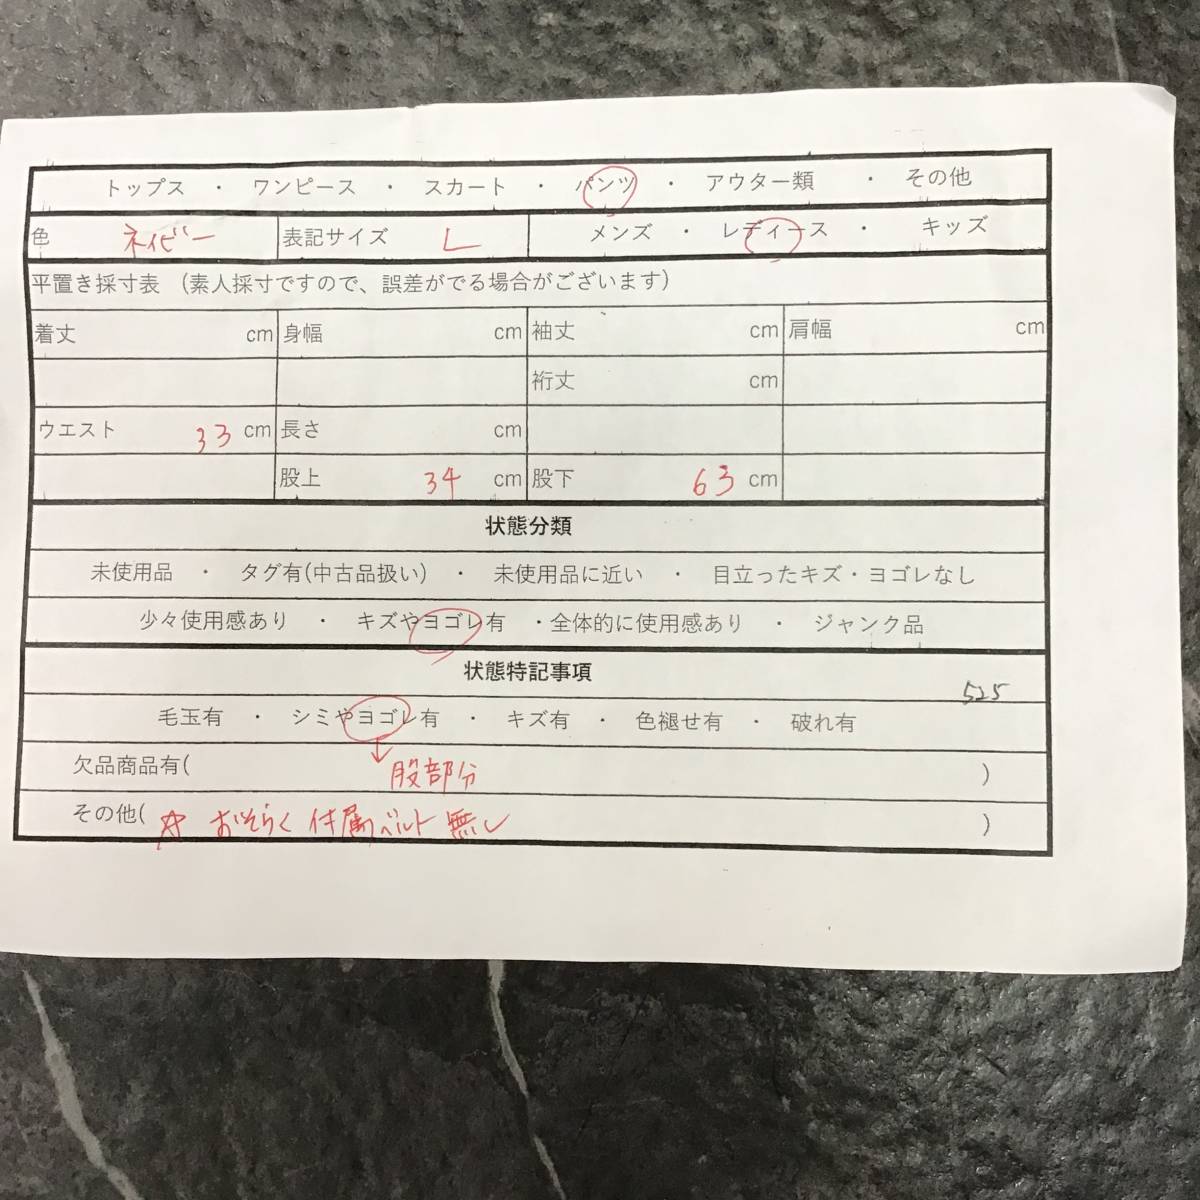 トップス ・ ワンピース ・ スカート ・ パンツ ・ アウター類 ・ その他
色 ネイビー 表記サイズ L メンズ ・ レディース ・ キッズ
平置き採寸表 (素人採寸ですので、誤差がでる場合がございます)
着丈 cm 身幅 cm 袖丈 cm 肩幅 cm
裄丈 cm
ウエスト 33 cm 長さ cm
股上 34 cm 股下 63 cm
状態分類
未使用品 ・ タグ有(中古品扱い) ・ 未使用品に近い ・ 目立ったキズ・ヨゴレなし
少々使用感あり ・ キズやヨゴレ有 ・全体的に使用感あり ・ ジャンク品
状態特記事項
525
毛玉有 ・ シミやヨゴレ有 ・ キズ有 ・ 色褪せ有 ・ 破れ有
欠品商品有( ↓ 股部分 )
その他( ☆ おそらく付属ベルト無し )